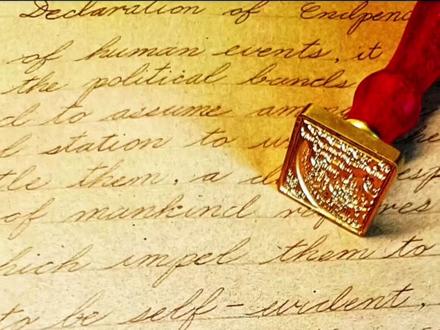 Declaration of Endpend
of human events, it
the political bands
d to assume am
l station to
tle them, a de
of mankind requires
hich impel them to
to be self-evident,